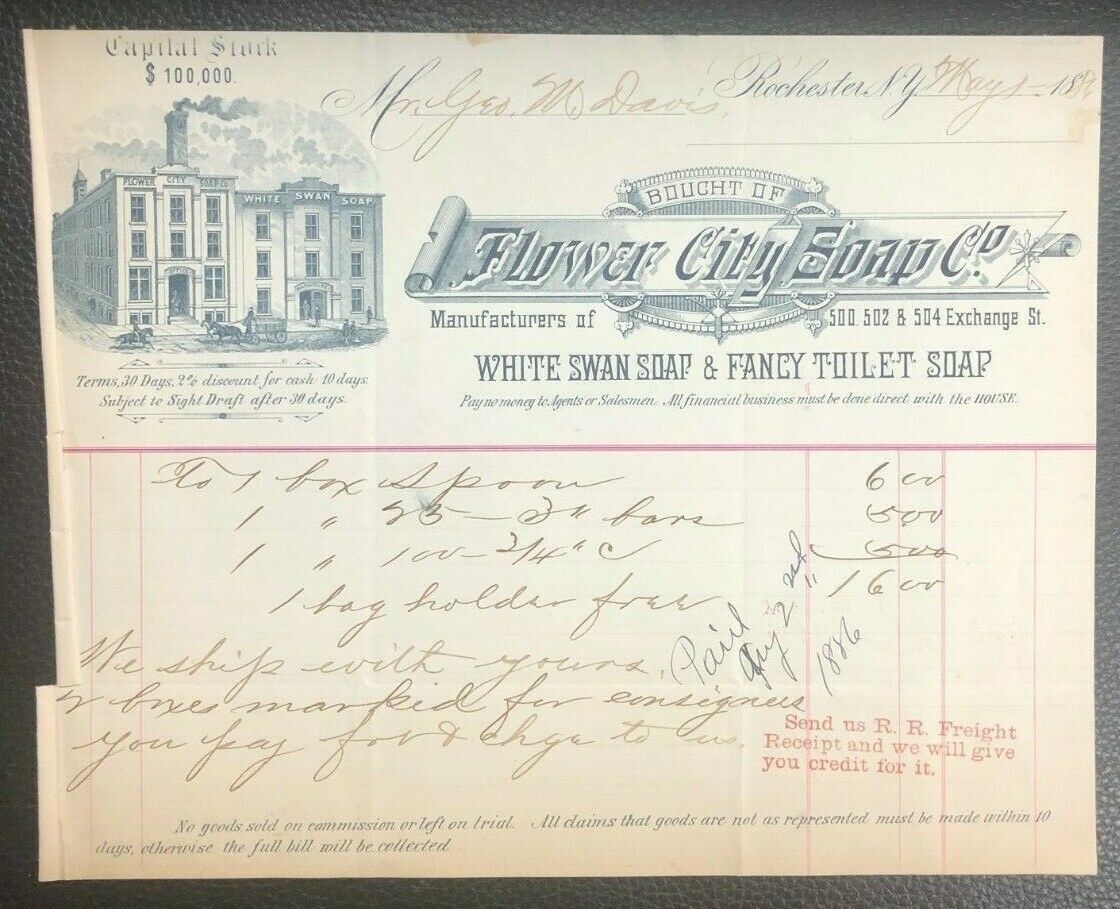 Capital Stock
$ 100,000.
Mr. Geo. M. Davis, Rochester N.Y. May 188
FLOWER CITY SOAP CO. WHITE SWAN SOAP
BOUGHT OF
Flower City Soap Co.
Manufacturers of 500, 502 & 504 Exchange St.
WHITE SWAN SOAP & FANCY TOILET SOAP
Terms, 30 Days, 2% discount for cash 10 days.
Subject to Sight Draft after 30 days.
Pay no money to Agents or Salesmen. All financial business must be done direct with the HOUSE.
To 1 box Spoon 6 00
1 " 25 - 3" bars 5 00
1 " 100 - 3/4" C 5 00
16 00
1 bag holder free
Paid
2nd
1886
We ship with yours.
2 boxes marked for consignees
you pay for & chge to us.
Send us R. R. Freight
Receipt and we will give
you credit for it.
No goods sold on commission or left on trial. All claims that goods are not as represented must be made within 10
days, otherwise the full bill will be collected.